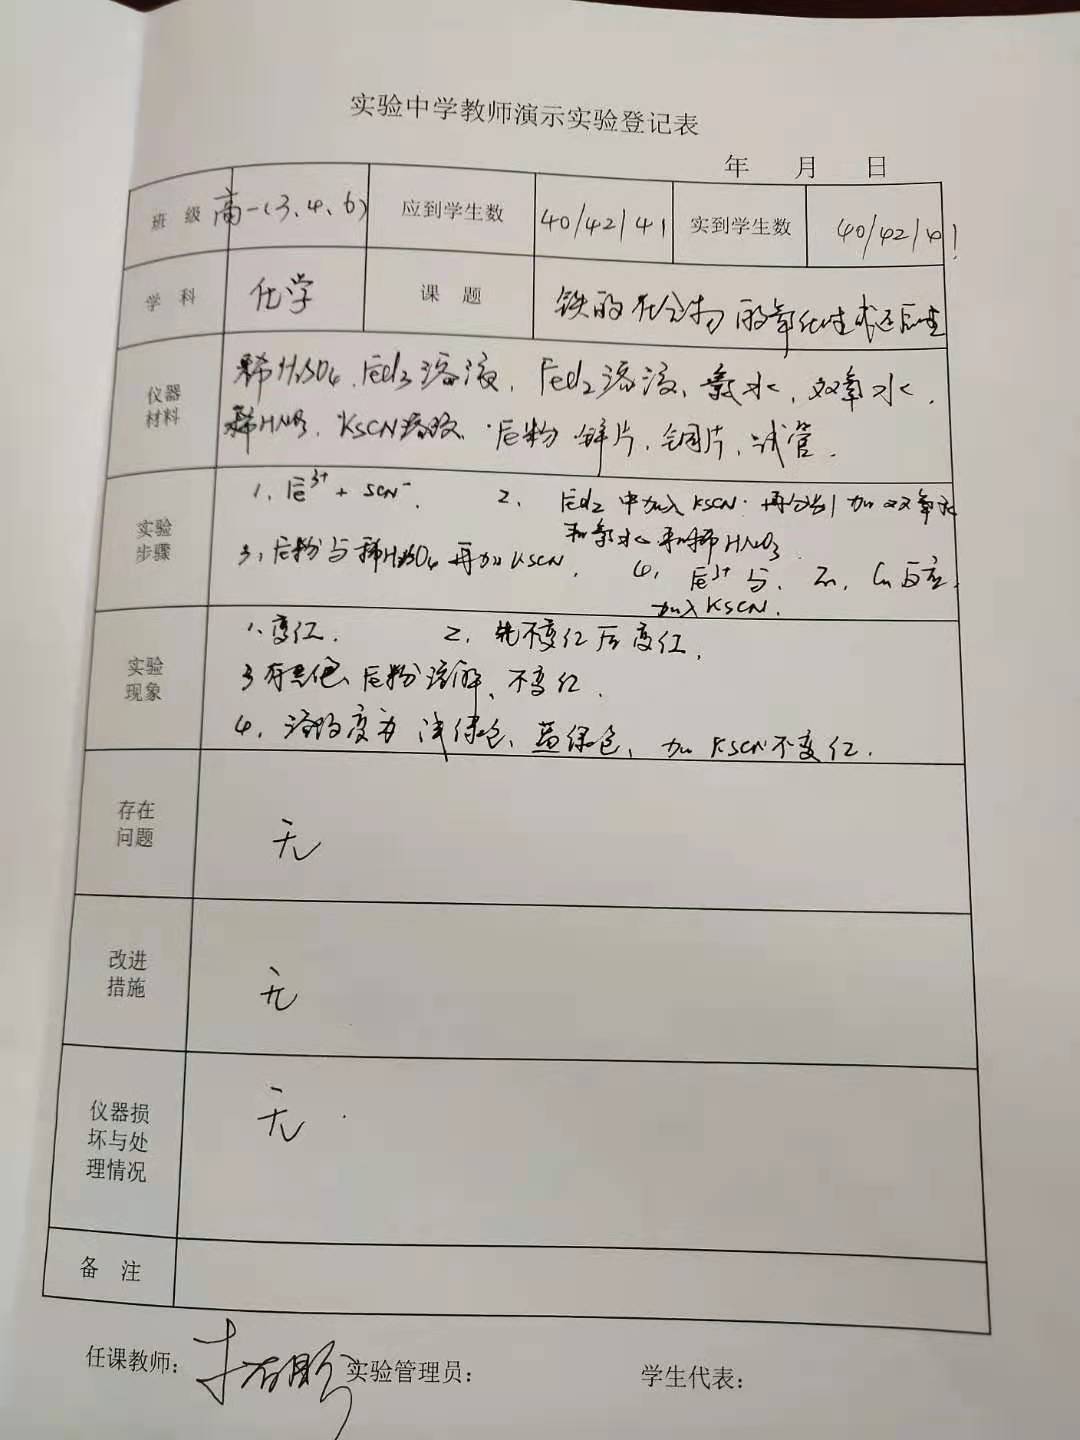 实验中学教师演示实验登记表
年 月 日
班 级 高一(3、4、6) 应到学生数 40/42/41 实到学生数 40/42/41
学 科 化学 课 题 铁的化合物的氧化性或还原性
仪器材料 稀H₂SO₄、FeCl₃溶液、FeCl₂溶液、氯水、双氧水、
稀HNO₃、KSCN溶液、Fe粉 锌片、铜片、试管.
实验步骤 1、Fe³⁺ + SCN⁻. 2、FeCl₂中加入KSCN·再分别加双氧水
和氯水和稀HNO₃
3、Fe粉与稀H₂SO₄再加KSCN. 4、Fe³⁺与、Zn、Cu反应.
加入KSCN.
实验现象 1、变红. 2、先不变红后变红.
3 有气泡、Fe粉溶解、不变红.
4、溶液变为浅绿色、蓝绿色、加KSCN不变红.
存在问题 无
改进措施 无
仪器损坏与处理情况 无
备 注
任课教师： 实验管理员： 学生代表：